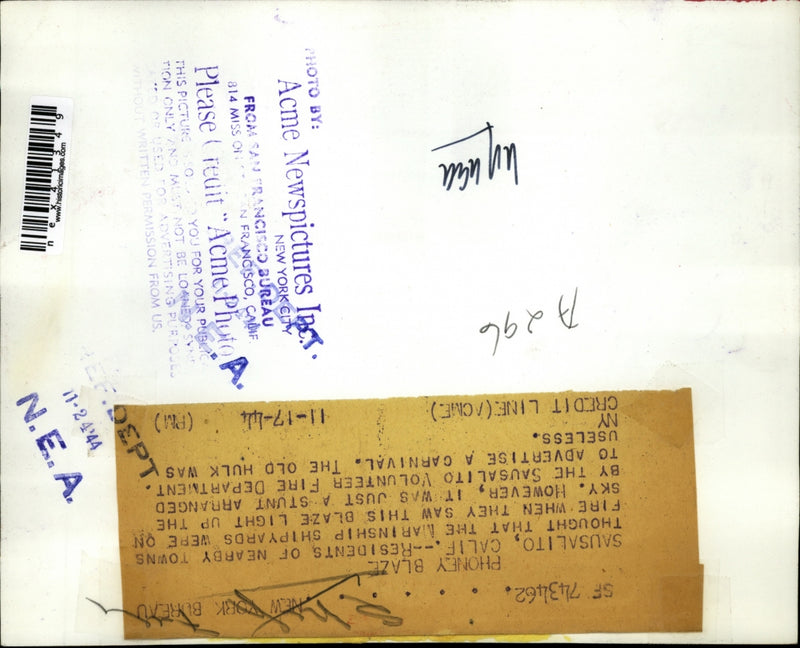 PHOTO BY:
Acme Newspictures Inc.
NEW YORK CITY
FROM SAN FRANCISCO BUREAU
814 MISSION FRANCISCO, CALIF
Please Credit "Acme Photo
THIS PICTURE YOU FOR YOUR PUBLIC
TION ONLY AND MUST NOT BE LOANED
OR USED FOR ADVERTISING PURPOSES
WITHOUT WRITTEN PERMISSION FROM US.
nex41349
www.historicimages.com
A296
REF. DEPT.
11-24'44
N.E.A.
SF 743462 . . . . . . NEW YORK BUREAU
PHONEY BLAZE
SAUSALITO, CALIF.--RESIDENTS OF NEARBY TOWNS
THOUGHT THAT THE MARINSHIP SHIPYARDS WERE ON
FIRE WHEN THEY SAW THIS BLAZE LIGHT UP THE
SKY. HOWEVER, IT WAS JUST A STUNT ARRANGED
BY THE SAUSALITO VOLUNTEER FIRE DEPARTMENT
TO ADVERTISE A CARNIVAL. THE OLD HULK WAS
USELESS.
NY
CREDIT LINE (ACME) 11-17-44 (PM)